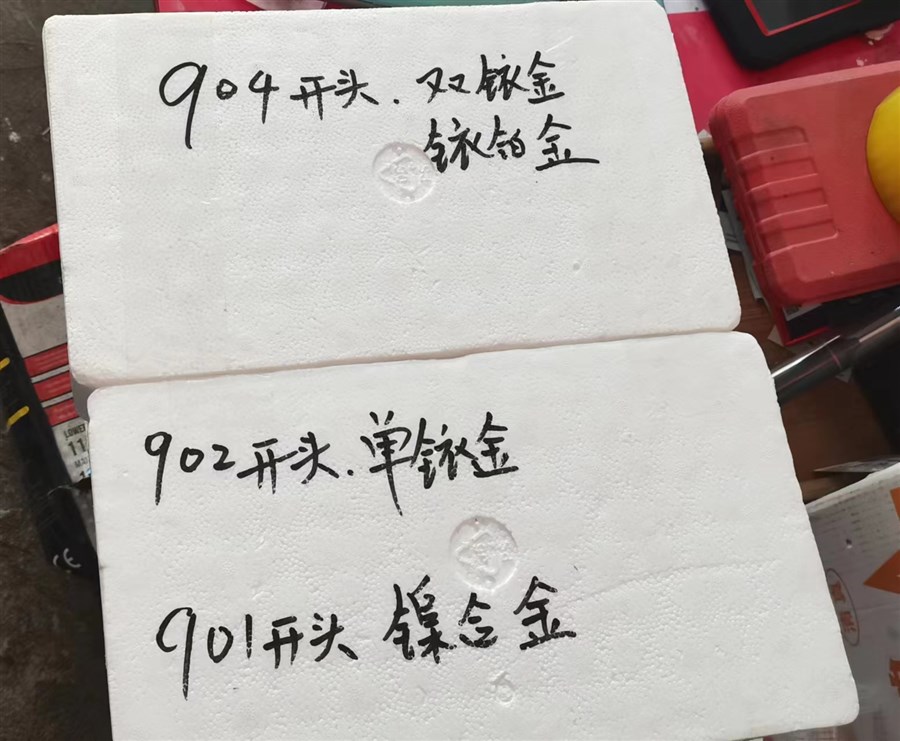 904开头.双铱金
铱铂金
902开头.单铱金
901开头 镍合金
LOWER
11
CE